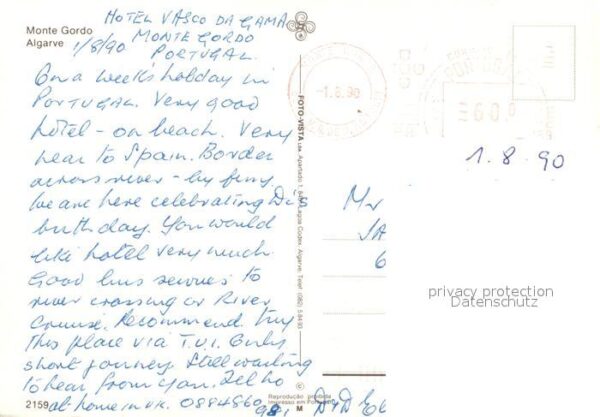 HOTEL VASCO DA GAMA
Monte Gordo
Algarve
1/8/90 MONTE GORDO
PORTUGAL.
On a weeks holiday in
PORTUGAL. Very good
hotel - on beach. Very
near to Spain. Border
across river - by ferry
We are here celebrating Di's
birthday. You would
like hotel very much
Good bus services to
river crossing or River
Cruise. Recommend. Try
this place via T.U.I. Only
short journey. Still waiting
to hear from you. Tel no
at home in UK.
2159
FOTO-VISTA Lda. Apartado 1, Lagoa Codex. Algarve. Telef. (082)
©
Reprodução proibida
Impresso em Portugal
M
-1.8.90
PORTUGAL
1.8.90
Mr
JA
6
privacy protection
Datenschutz